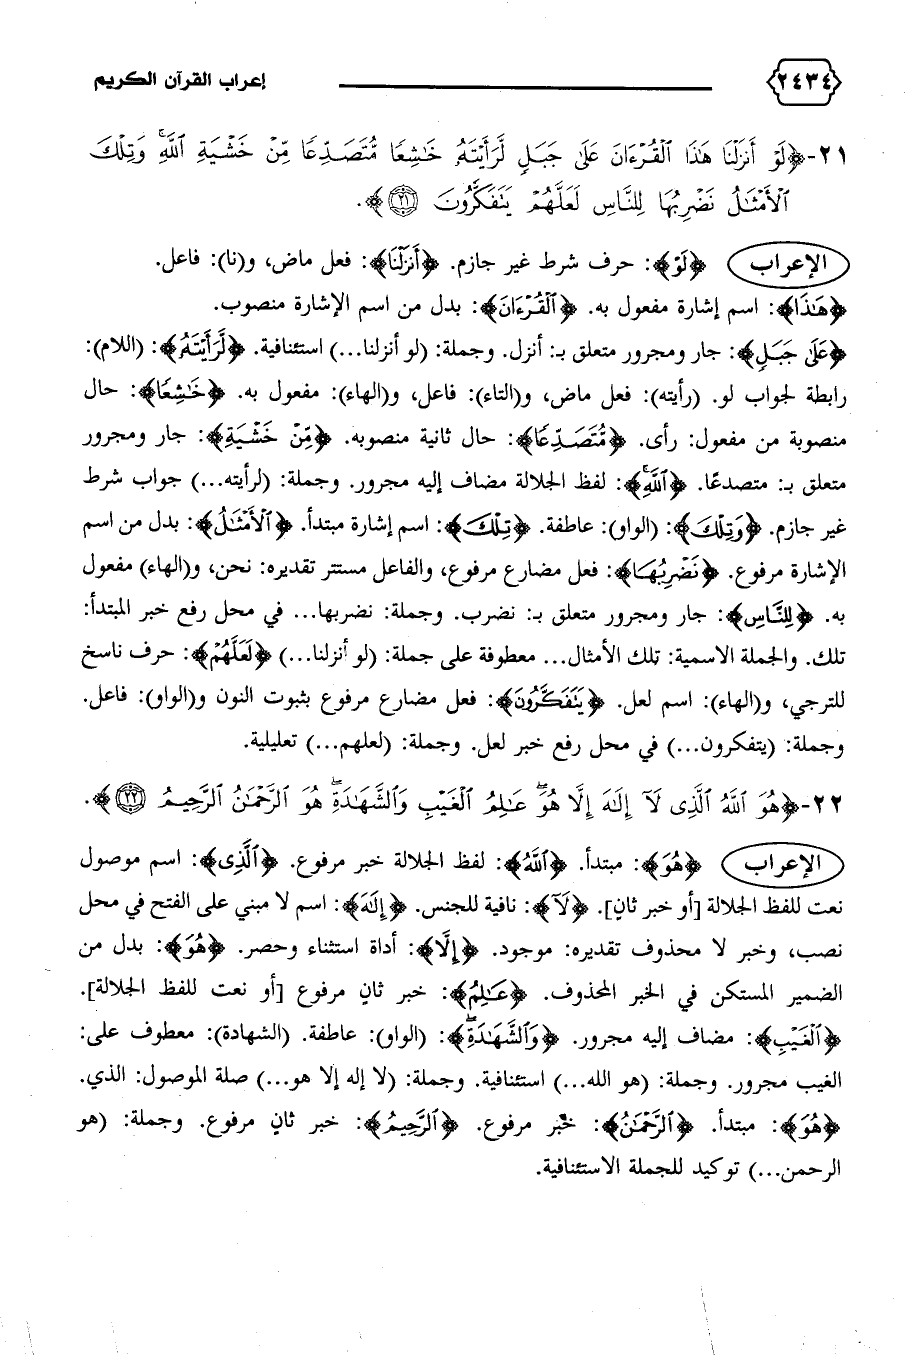 ٢٤٣٤ إعراب القرآن الكريم
٢١-﴿لَوْ أَنزَلْنَا هَٰذَا ٱلْقُرْءَانَ عَلَىٰ جَبَلٍ لَّرَأَيْتَهُۥ خَٰشِعًا مُّتَصَدِّعًا مِّنْ خَشْيَةِ ٱللَّهِ ۚ وَتِلْكَ
ٱلْأَمْثَٰلُ نَضْرِبُهَا لِلنَّاسِ لَعَلَّهُمْ يَتَفَكَّرُونَ ٢١﴾.
الإعراب ﴿لَوْ﴾: حرف شرط غير جازم. ﴿أَنزَلْنَا﴾: فعل ماض، و(نا): فاعل.
﴿هَٰذَا﴾: اسم إشارة مفعول به. ﴿ٱلْقُرْءَانَ﴾: بدل من اسم الإشارة منصوب.
﴿عَلَىٰ جَبَلٍ﴾: جار ومجرور متعلق بـ: أنزل. وجملة: (لو أنزلنا...) استئنافية. ﴿لَّرَأَيْتَهُۥ﴾: (اللام):
رابطة لجواب لو. (رأيته): فعل ماض، و(التاء): فاعل، و(الهاء): مفعول به. ﴿خَٰشِعًا﴾: حال
منصوبة من مفعول: رأى. ﴿مُّتَصَدِّعًا﴾: حال ثانية منصوبه. ﴿مِّنْ خَشْيَةِ﴾: جار ومجرور
متعلق بـ: متصدعًا. ﴿ٱللَّهِ ۚ﴾: لفظ الجلالة مضاف إليه مجرور. وجملة: (لرأيته...) جواب شرط
غير جازم. ﴿وَتِلْكَ﴾: (الواو): عاطفة. ﴿تِلْكَ﴾: اسم إشارة مبتدأ. ﴿ٱلْأَمْثَٰلُ﴾: بدل من اسم
الإشارة مرفوع. ﴿نَضْرِبُهَا﴾: فعل مضارع مرفوع، والفاعل مستتر تقديره: نحن، و(الهاء) مفعول
به. ﴿لِلنَّاسِ﴾: جار ومجرور متعلق بـ: نضرب. وجملة: نضربها... في محل رفع خبر المبتدأ:
تلك. والجملة الاسمية: تلك الأمثال... معطوفة على جملة: (لو أنزلنا...) ﴿لَعَلَّهُمْ﴾: حرف ناسخ
للترجي، و(الهاء): اسم لعل. ﴿يَتَفَكَّرُونَ﴾: فعل مضارع مرفوع بثبوت النون و(الواو): فاعل.
وجملة: (يتفكرون...) في محل رفع خبر لعل. وجملة: (لعلهم...) تعليلية.
٢٢-﴿هُوَ ٱللَّهُ ٱلَّذِى لَآ إِلَٰهَ إِلَّا هُوَ ۖ عَٰلِمُ ٱلْغَيْبِ وَٱلشَّهَٰدَةِ ۖ هُوَ ٱلرَّحْمَٰنُ ٱلرَّحِيمُ ٢٢﴾.
الإعراب ﴿هُوَ﴾: مبتدأ. ﴿ٱللَّهُ﴾: لفظ الجلالة خبر مرفوع. ﴿ٱلَّذِى﴾: اسم موصول
نعت للفظ الجلالة [أو خبر ثانٍ]. ﴿لَآ﴾: نافية للجنس. ﴿إِلَٰهَ﴾: اسم لا مبني على الفتح في محل
نصب، وخبر لا محذوف تقديره: موجود. ﴿إِلَّا﴾: أداة استثناء وحصر. ﴿هُوَ﴾: بدل من
الضمير المستكن في الخبر المحذوف. ﴿عَٰلِمُ﴾: خبر ثانٍ مرفوع [أو نعت للفظ الجلالة].
﴿ٱلْغَيْبِ﴾: مضاف إليه مجرور. ﴿وَٱلشَّهَٰدَةِ ۖ﴾: (الواو): عاطفة. (الشهادة): معطوف على:
الغيب مجرور. وجملة: (هو الله...) استئنافية. وجملة: (لا إله إلا هو...) صلة الموصول: الذي.
﴿هُوَ﴾: مبتدأ. ﴿ٱلرَّحْمَٰنُ﴾: خبر مرفوع. ﴿ٱلرَّحِيمُ﴾: خبر ثانٍ مرفوع. وجملة: (هو
الرحمن...) توكيد للجملة الاستئنافية.